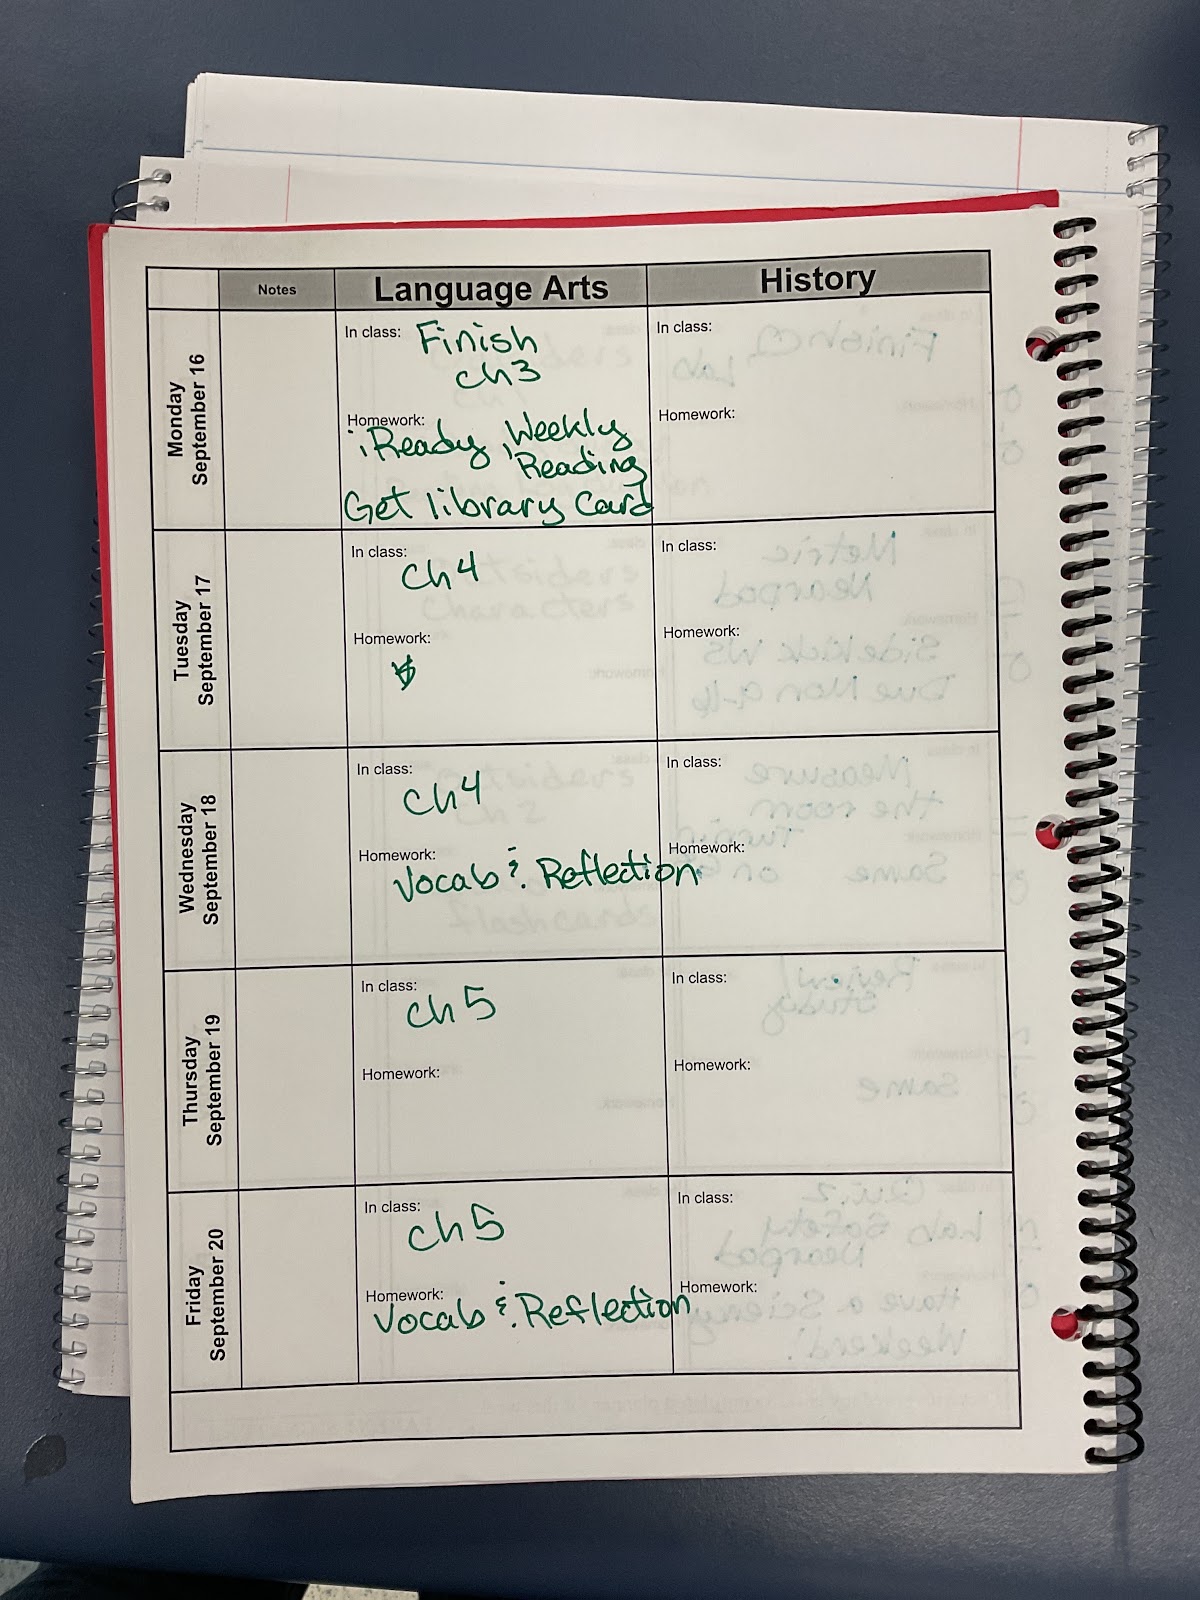 Notes
Language Arts
History
Monday
September 16
In class: Finish
ch3
Homework:
iReady, Weekly
Reading
Get library Card
In class:
Homework:
Tuesday
September 17
In class:
ch4
Homework:
In class:
Homework:
Wednesday
September 18
In class:
ch4
Homework:
Vocab & Reflection
In class:
Homework:
Thursday
September 19
In class:
ch5
Homework:
In class:
Homework:
Friday
September 20
In class:
ch5
Homework:
Vocab & Reflection
In class:
Homework: